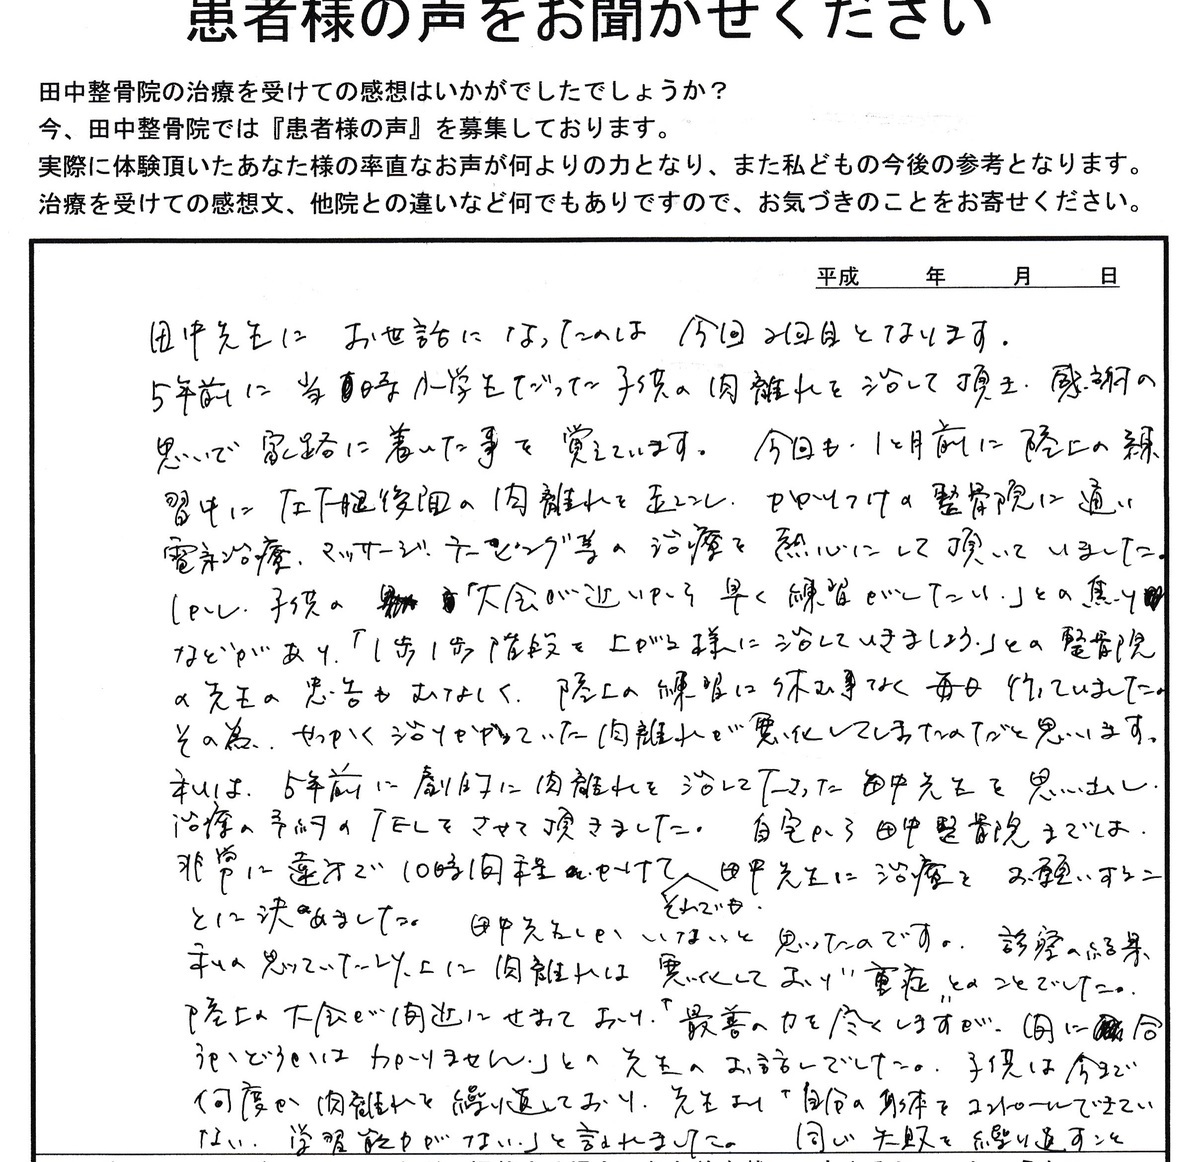 患者様の声をお聞かせください
田中整骨院の治療を受けての感想はいかがでしたでしょうか？
今、田中整骨院では『患者様の声』を募集しております。
実際に体験頂いたあなた様の率直なお声が何よりの力となり、また私どもの今後の参考となります。
治療を受けての感想文、他院との違いなど何でもありですので、お気づきのことをお寄せください。
平成　　年　　月　　日
田中先生に お世話になったのは 今回2回目となります。
5年前に当時小学生だった子供の肉離れを治して頂き、感謝の
思いで家路に着いた事を覚えています。 今回も、1ヶ月前に陸上の練
習中に左下腿後面の肉離れを起こし、かかりつけの整骨院に通い
電気治療、マッサージ、テーピング等の治療を熱心にして頂いていました。
しかし、子供の「大会が近いから早く練習がしたい。」との焦り
などがあり、「1歩1歩階段を上がる様に治していきましょう。」との整骨院
の先生の忠告もむなしく、陸上の練習に休む事なく毎日行っていました。
その為、せっかく治りかかっていた肉離れが悪化してしまったのだと思います。
私は、5年前に劇的に肉離れを治して下さった田中先生を思い出し、
治療の予約のTELをさせて頂きました。 自宅から田中整骨院までは、
非常に遠方で10時間程かけて、田中先生に治療をお願いするこ
それでも、
とに決めました。 田中先生しかいないと思ったのです。 診察の結果
私の思っていた以上に肉離れは悪化しており"重症"とのことでした。
陸上の大会が間近にせまっており、「最善の力を尽くしますが、間に合
うかどうかはわかりません。」との先生のお話しでした。 子供は今まで
何度か肉離れを繰り返しており、先生より「自分の身体をコントロールできてい
ない、学習能力がない。」と言われました。 同じ失敗を繰り返すこと